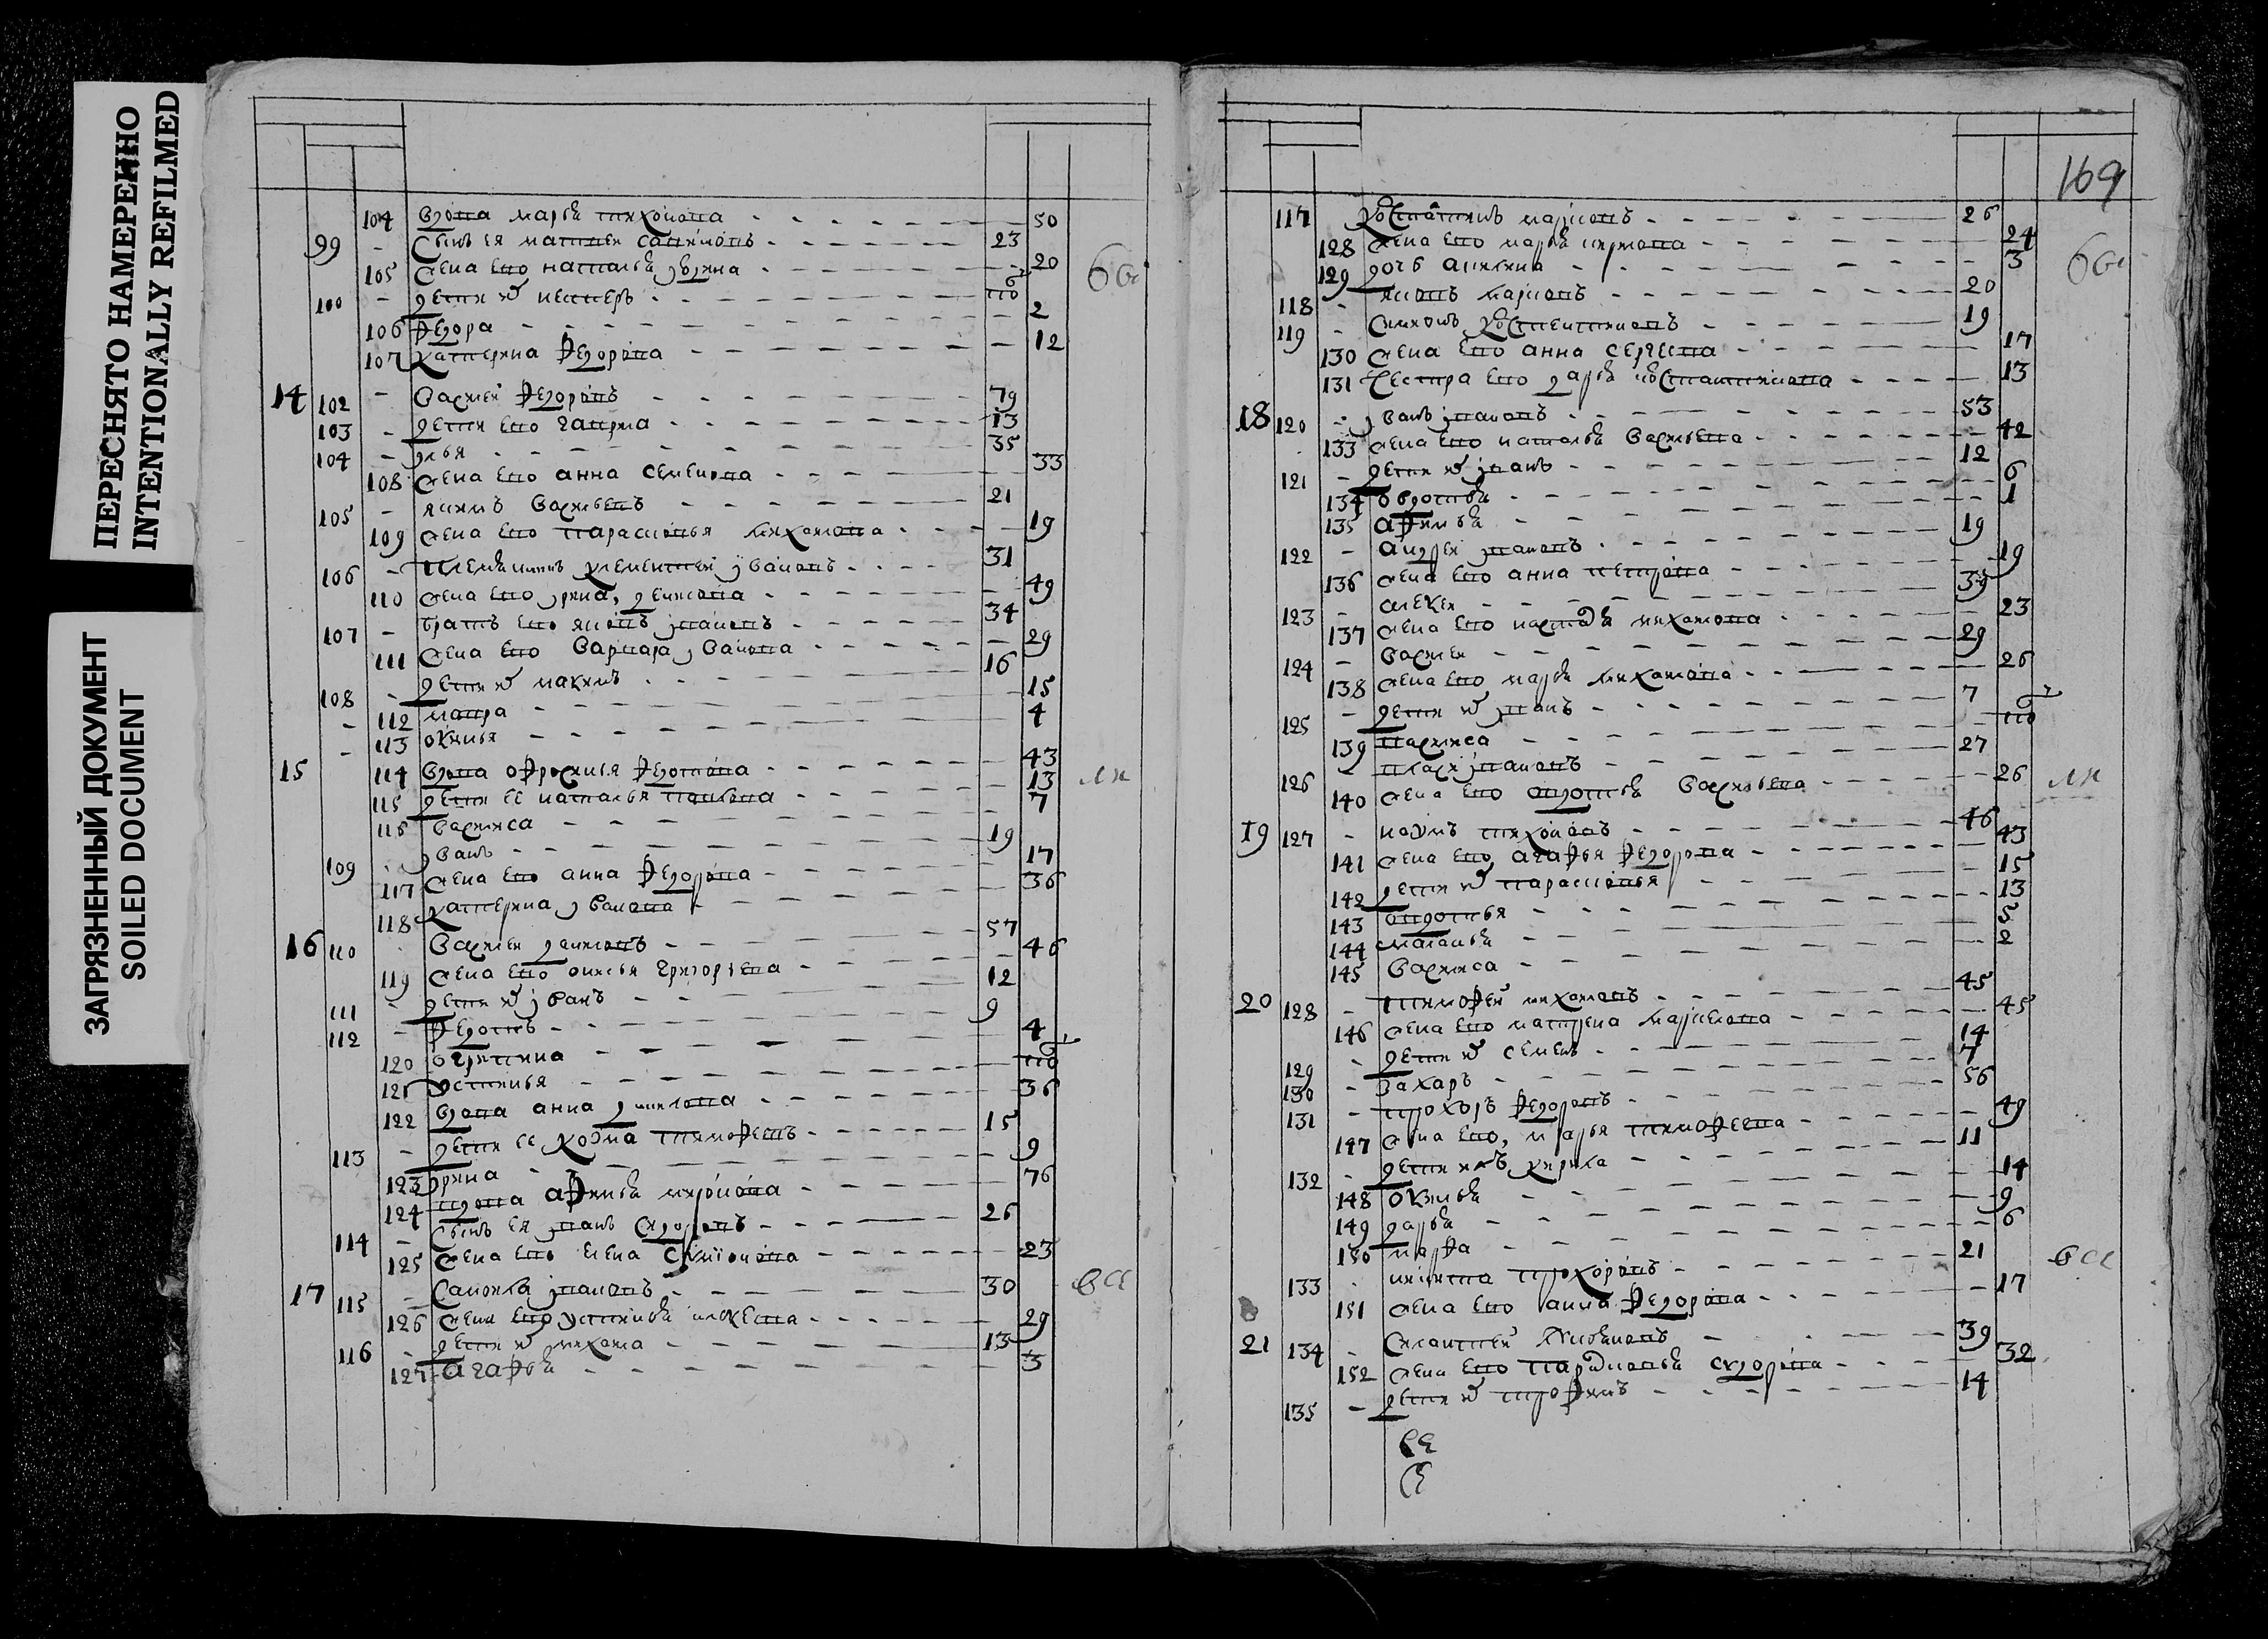 ПЕРЕСНЯТО НАМЕРЕННО
INTENTIONALLY REFILMED
ЗАГРЯЗНЕННЫЙ ДОКУМЕНТ
SOILED DOCUMENT
104 вдова марья тихонова 50
99 сынъ ея матвей 23
105 жена ево наталья 20
100 дети их нестеръ
106 Федора 2
107 катерина Федорова 12
14 102 василей Федоровъ 79
103 дети ево гаврила 13
104 илья 35
108 жена ево анна семенова 33
105 якимъ васильевъ 21
109 жена ево парасковья михаилова 19
106 племянникъ клементей ивановъ 31
110 жена ево ирина денисова 49
107 братъ ево яковъ ивановъ 34
111 жена ево варвара иванова 29
108 дети их максимъ 16
112 мавра 15
113 оксинья 4
15 114 вдова офросинья Федотова 43
115 дети ее наталья павлова 13
116 василиса 7
109 иванъ 19
117 жена ево анна Федорова 17
118 катерина иванова 36
16 110 василей даниловъ 57
119 жена ево аксинья григорьева 46
111 дети их иванъ 12
112 Федотъ 9
120 огрипина 4
121 устинья
122 вдова анна данилова 36
113 дети ее козма тимофеевъ 15
123 ирина 9
124 вдова афимья миронова 76
114 сынъ ея иванъ сидоровъ 26
125 жена ево елена симионова 23
17 115 савелей ивановъ 30
126 жена ево устинья алексеева 29
116 дети их михаила 13
127 агафья 3
169
117 костянтинъ марковъ 26
128 жена ево марья 24
129 дочь акилина 3
118 яковъ марковъ 20
119 симионъ костентиновъ 19
130 жена ево анна сергеева 17
131 сестра ево дарья костантинова 13
18 120 иванъ ивановъ 53
133 жена ево наталья васильева 42
121 дети их иванъ 12
134 овдотья 6
135 афимья 1
122 андрей ивановъ 19
136 жена ево анна петрова 19
123 алексей 39
137 жена ево настасья михаилова 23
124 василей 29
138 жена ево марья михаилова 26
125 дети их иванъ 7
139 василиса
126 власъ ивановъ 27
140 жена ево овдотья васильева 26
19 127 наумъ тихоновъ 46
141 жена ево агафья Федорова 43
142 дети их парасковья 15
143 овдотья 13
144 маланья 5
145 василиса 2
20 128 тимофей михаиловъ 45
146 жена ево матрена маркелова 45
129 дети их семенъ 14
130 захаръ 7
131 прохоръ Федоровъ 56
147 жена ево марья тимофеева 49
132 дети ихъ кирила 11
148 оксинья 14
149 дарья 9
150 марфа 6
133 никита прохоровъ 21
151 жена ево анна Федорова 17
21 134 силантей 39
152 жена ево парасковья сидорова 32
135 дети их трофимъ 14